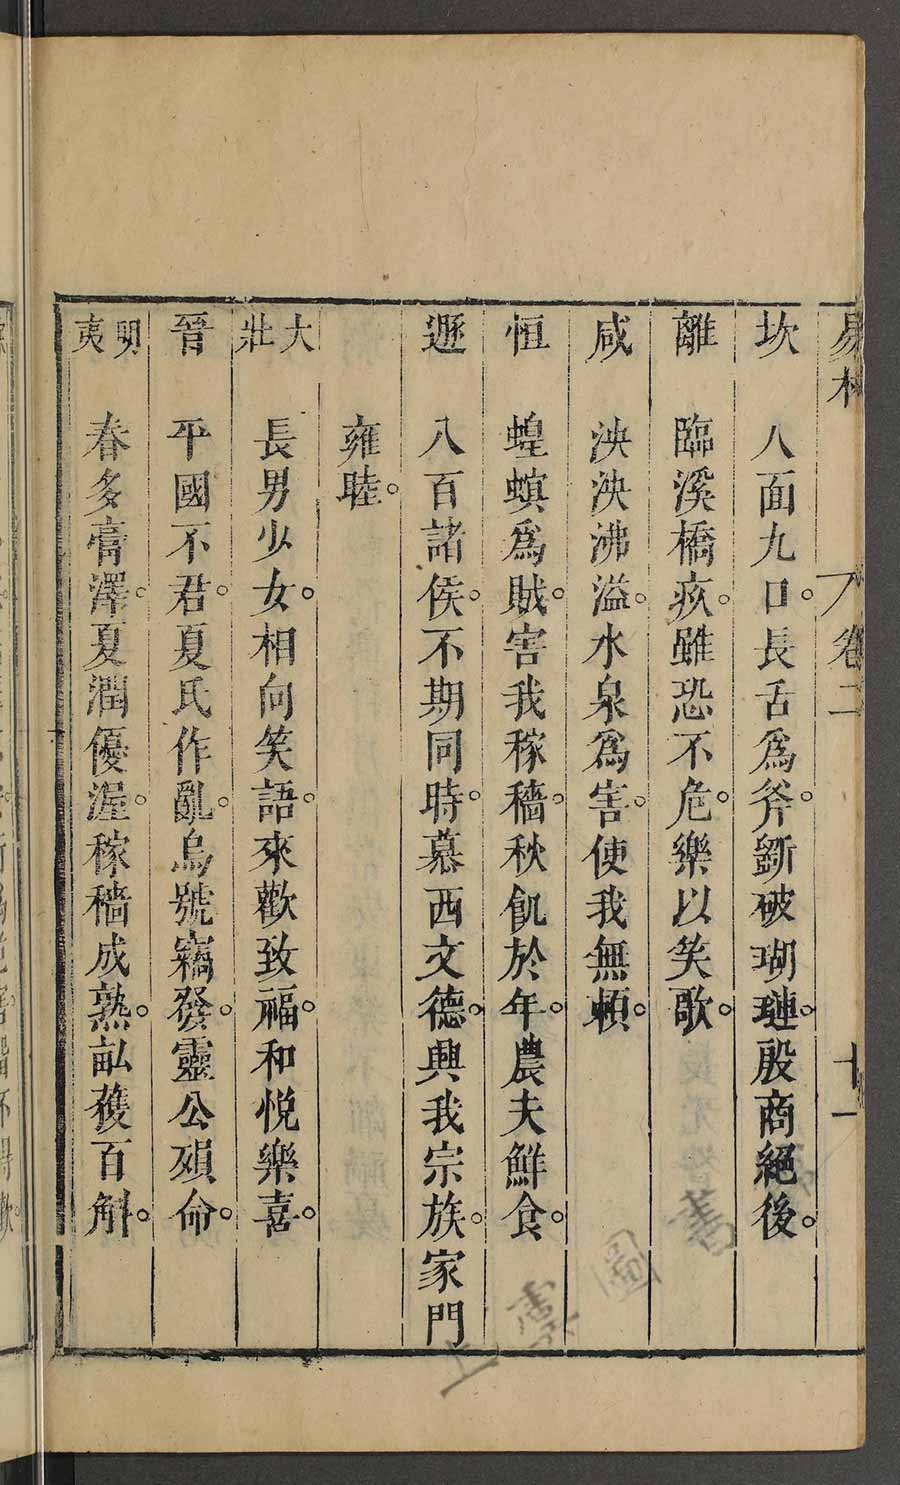 易林 卷二 十一
坎 八面九口。長舌爲斧。斵破瑚璉。殷商絕後。
離 臨溪橋疚。雖恐不危。樂以笑歌。
咸 泱泱沸溢。水泉爲害。使我無賴。
恒 蝗螟爲賊。害我稼穡。秋飢於年。農夫鮮食。
遯 八百諸侯。不期同時。慕西文德。興我宗族。家門
雍睦。
大壯 長男少女。相向笑語。來歡致福。和悅樂喜。
晉 平國不君。夏氏作亂。烏號竊發。靈公殞命。
明夷 春多膏澤。夏潤優渥。稼穡成熟。畝獲百斛。